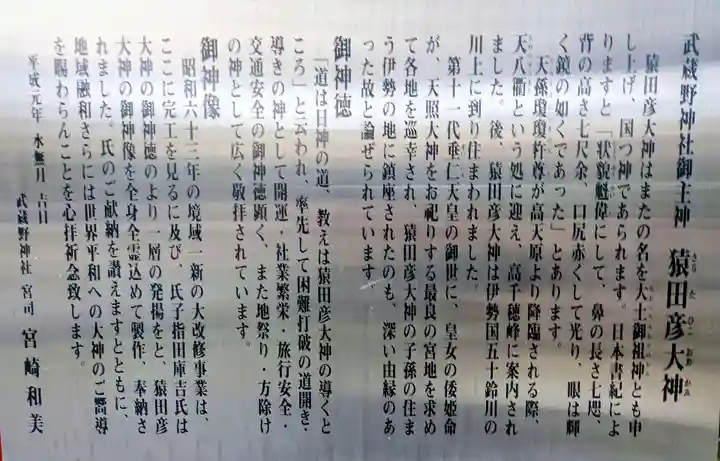 武蔵野神社御主神　猿田彦大神
さるたひこおおかみ
猿田彦大神はまたの名を大土御祖神とも申
し上げ、国つ神であられます。日本書紀によ
りますと「状貌魁偉にして、鼻の長さ七咫、
背の高さ七尺余、口尻赤くして光り、眼は輝
く鏡の如くであった」とあります。
天孫瓊瓊杵尊が高天原より降臨される際、
天八衢という処に迎え、高千穂峰に案内され
ました。後、猿田彦大神は伊勢国五十鈴川の
川上に到り住まわれました。
第十一代垂仁天皇の御世に、皇女の倭姫命
が、天照大神をお祀りする最良の宮地を求め
て各地を巡幸され、猿田彦大神の子孫の住ま
う伊勢の地に鎮座されたのも、深い由縁のあ
った故と論ぜられています。
御神徳
「道は日神の道、教えは猿田彦大神の導くと
ころ」と云われ、率先して困難打破の道開き・
導きの神として開運・社業繁栄・旅行安全・
交通安全の御神徳顕く、また地祭り・方除け
の神として広く敬拝されています。
御神像
昭和六十三年の境域一新の大改修事業は、
ここに完工を見るに及び、氏子指田庫吉氏は
大神の御神徳のより一層の発揚をと、猿田彦
大神の御神像を全身全霊込めて製作、奉納さ
れました。氏のご献納を讃えますとともに、
地域融和さらには世界平和への大神のご嚮導
を賜わらんことを心拝祈念致します。
平成元年　水無月　吉日
武蔵野神社　宮司　宮崎和美